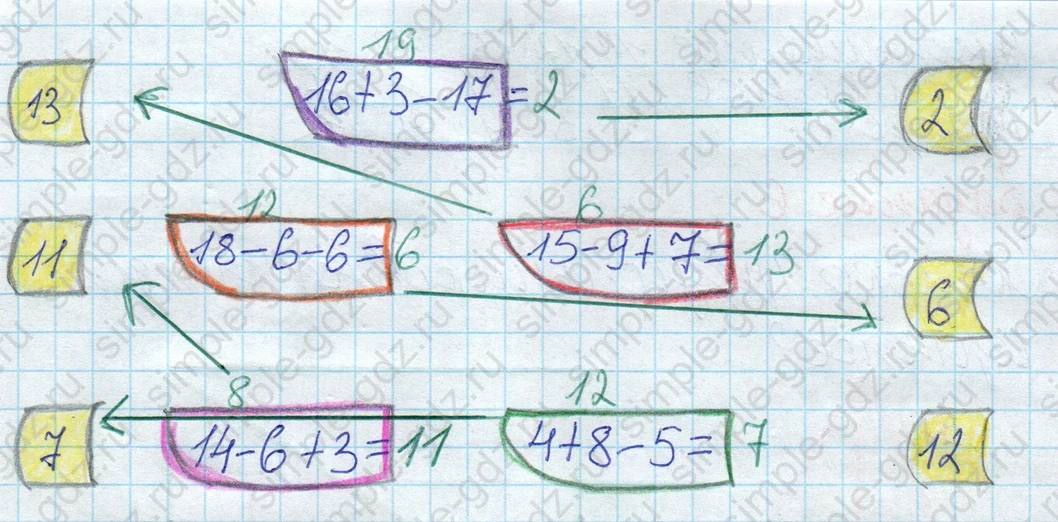 19
13 16+3-17=2 2
12 6
11 18-6-6=6 15-9+7=13 6
8 12
7 14-6+3=11 4+8-5=7 12
simple-gdz.ru